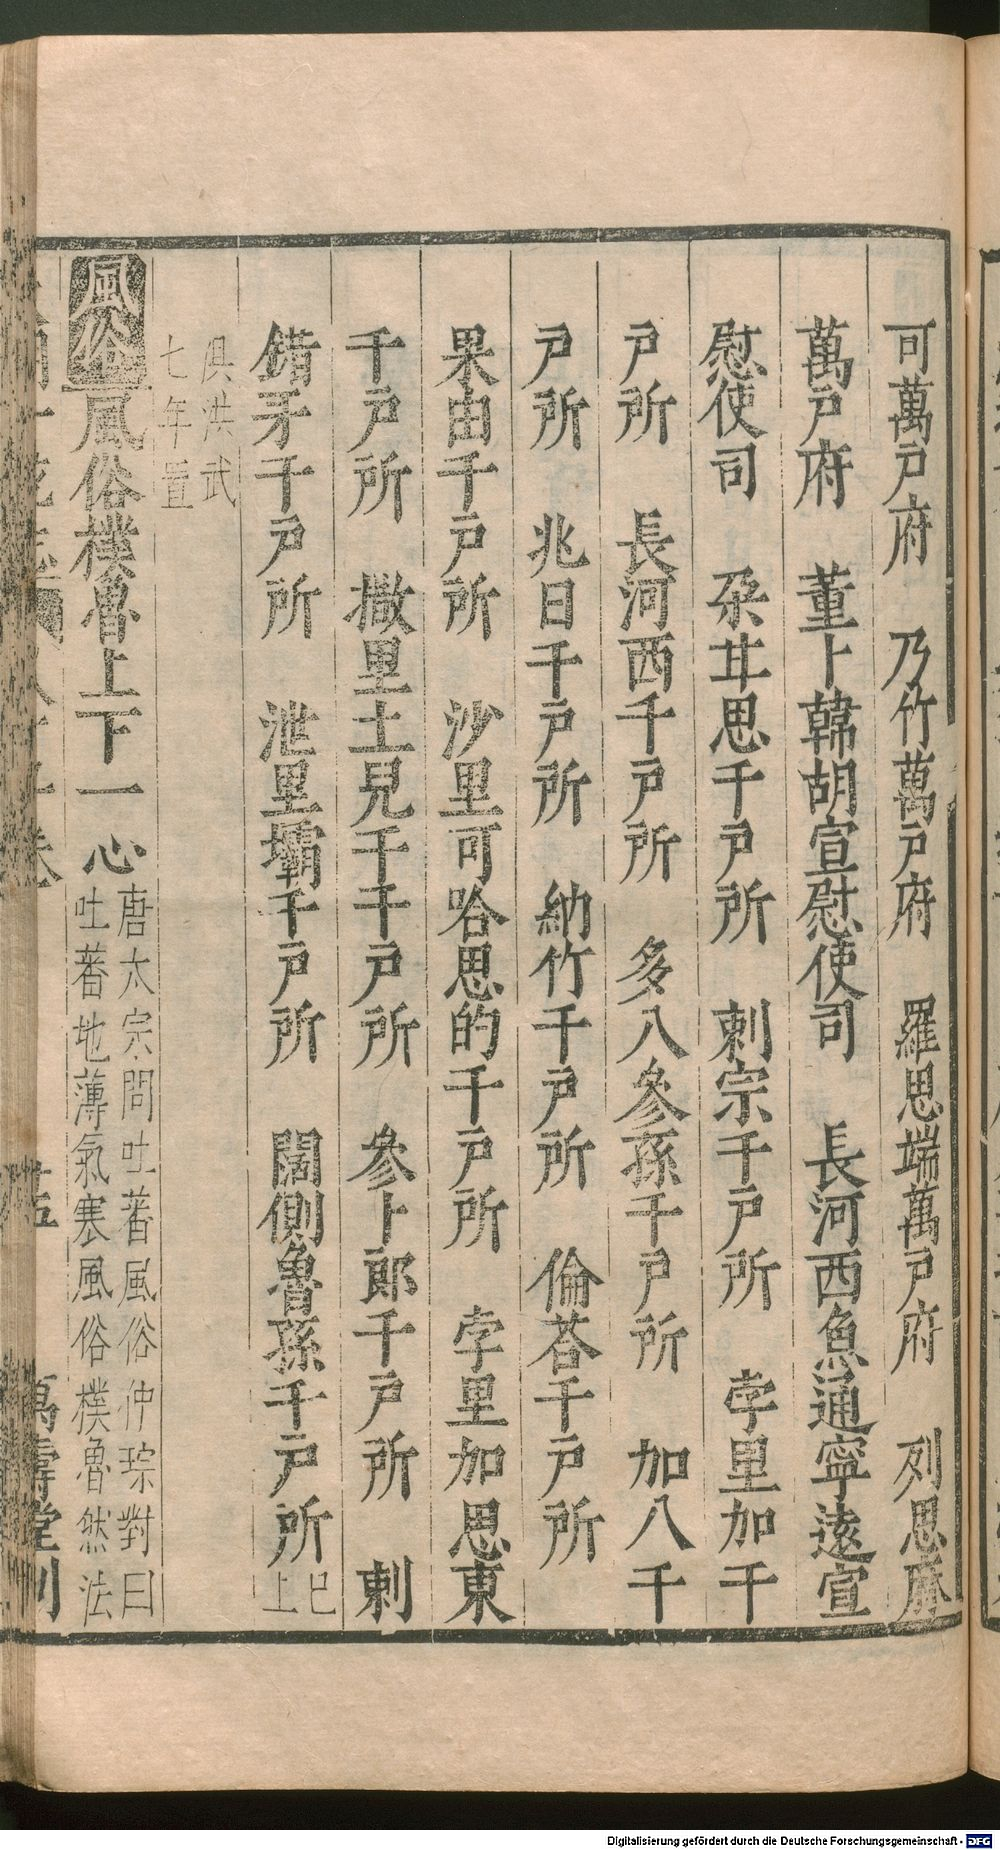 可萬戸府　乃竹萬戸府　羅思端萬戸府　列思麻
萬戸府　董卜韓胡宣慰使司　長河西魚通寧遠宣
慰使司　朶甘思千戸所　剌宗千戸所　孛里加千
戸所　長河西千戸所　多八參孫千戸所　加八千
戸所　兆日千戸所　納竹千戸所　倫荅千戸所
果由千戸所　沙里可哈思的千戸所　孛里加思東
千戸所　撒里土兒千千戸所　參卜郎千戸所　剌
錯牙千戸所　泄里壩千戸所　闊側魯孫千戸所
巳
上
俱洪武
七年置
風俗風俗樸魯上下一心
唐太宗問吐蕃風俗仲琮對曰
吐蕃地薄氣寒風俗樸魯然法
萬壽堂刊
Digitalisierung gefördert durch die Deutsche Forschungsgemeinschaft - DFG